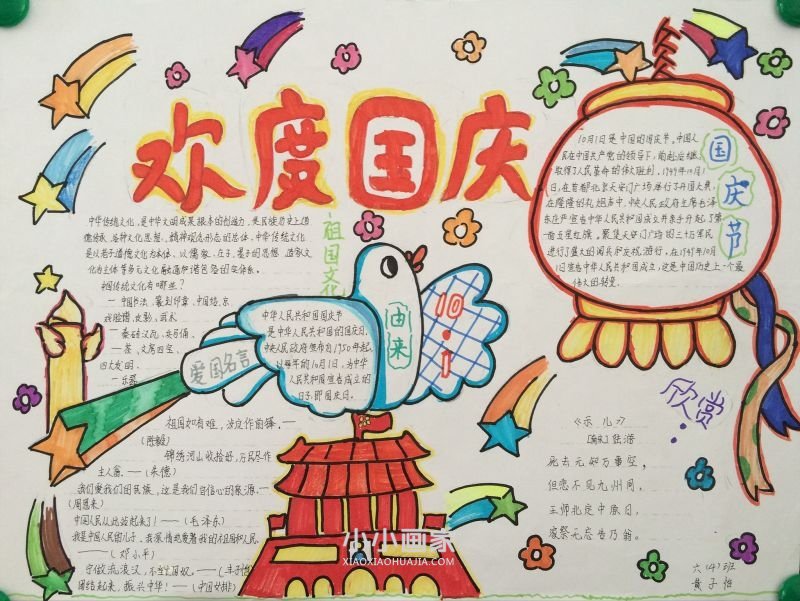 欢度国庆
中华传统文化,是中华文明成果根本的创造力,是民族历史上道
德传承、各种文化思想、精神观念形态的总体。中华传统文化
是以老子道德文化为本体、以儒家、庄子、墨子的思想、道家文
化为主体等多元文化融通和谐包容的实体系。
中国传统文化有哪些?
祖国文化
中华人民共和国国庆节
是中华人民共和国的国庆日。
中央人民政府宣布为,1950年起,
以每年的10月1日,为中华
人民共和国宣告成立的
日子,即国庆日。
由来
10·1
爱国名言
祖国如有难,汝应作前锋。——
(陈毅)
锦绣河山收拾好,万民尽作
主人翁。——(朱德)
我们爱我们的民族,这是我们自信心的泉源。——
(周恩来)
中国人民从此站起来了!——(毛泽东)
我是中国人民的儿子,我深情地爱着我的祖国和人民。
——(邓小平)
宁做流浪汉,不当亡国奴。——(丰子恺)
团结起来,振兴中华!——(中国女排)
国庆节
10月1日是中国的国庆节。中国人
民在中国共产党的领导下,前赴后继,
取得了人民革命的伟大胜利,1949年10月1
日,在首都北京天安门广场举行了开国大典,
在隆隆的礼炮声中,中央人民政府主席毛泽
东庄严宣告中华人民共和国成立并亲手升起了第
一面五星红旗。聚集天安门广场的三十万军民
进行了盛大的阅兵和庆祝游行。在1949年10月1
日宣告中华人民共和国成立,这是中国历史上一个最
伟大的转变。
欣赏
《示儿》
[南宋]陆游
死去元知万事空,
但悲不见九州同。
王师北定中原日,
家祭无忘告乃翁。
六(4)班
黄子怡
小小画家
XIAOXIAOHUAJIA.COM